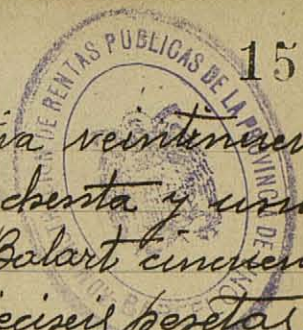 15
RENTAS PÚBLICAS DE LA PROVINCIA DE
veintinueve
chenta y un
Balart cincuen
eciseis pesetas